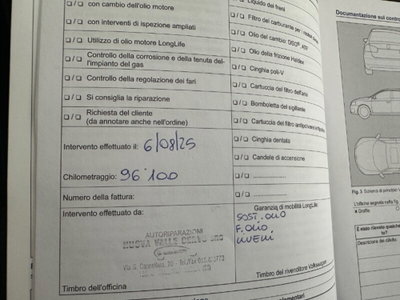 con cambio dell'olio motore
con interventi di ispezione ampliati
Utilizzo di olio motore LongLife
Controllo della corrosione e della tenuta dell'impianto del gas
Controllo della regolazione dei fari
Si consiglia la riparazione
Richiesta del cliente
(da annotare anche nell'ordine)
Intervento effettuato il: 6/08/25
Chilometraggio: 96100
Numero della fattura:
Intervento effettuato da:
AUTORIPARAZIONI
NUOVA VALLE
Timbro dell'officina
Liquido dei freni
Filtro del carburante per i motori
Olio del cambio DSG®,
Olio della frizione Haldex
Cinghia poli-V
Cartuccia del filtro dell'aria
Bomboletta del sigillante
Cartuccia del filtro antipolvere
Cinghia dentata
Candele di accensione
Garanzia di mobilità LongLife:
SOST. OLIO
F. OLIO
LIVELLI
Timbro del rivenditore Volkswagen
Documentazione sui